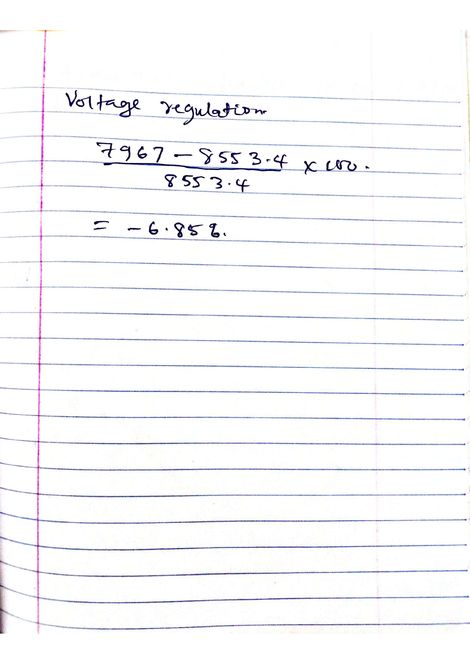 Voltage regulation
7967 - 8553.4 × 100.
8553.4
= -6.85%.